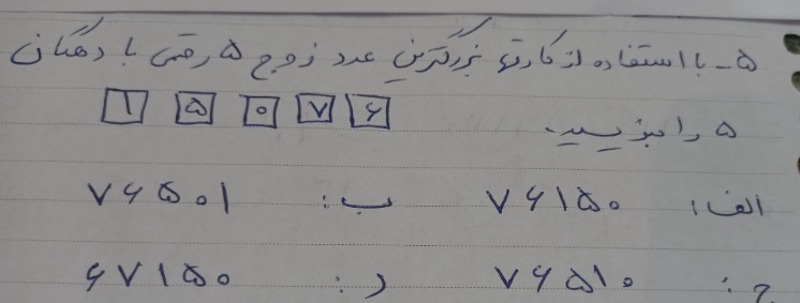 ۵ - با استفاده از کارتها بزرگترین عدد زوج ۵ رقمی با دهگان
۵ را بنویسید. ۱ ۵ ۰ ۷ ۶
الف: ۷۶۱۵۰ ب: ۷۶۵۰۱
ج: ۷۶۵۱۰ د: ۶۷۱۵۰